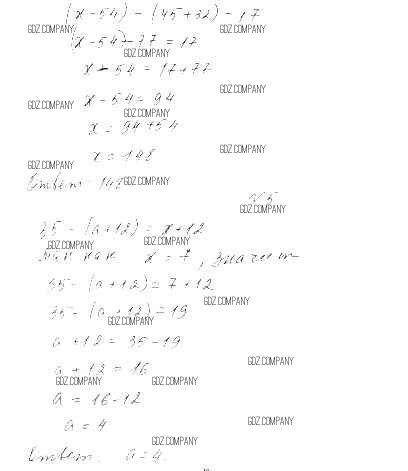 (x-54) - (45+32) - 17
GDZ.COMPANY GDZ.COMPANY
(x-54)-77 = 17
GDZ.COMPANY
x-54 = 17+77
GDZ.COMPANY
x-54 = 94
GDZ.COMPANY GDZ.COMPANY
x = 94+54
x = 148
GDZ.COMPANY GDZ.COMPANY
Ответ: 148 GDZ.COMPANY
√5
GDZ.COMPANY
35 - (a+12) = x+12
GDZ.COMPANY GDZ.COMPANY
так как x = 7, значит
35 - (a+12) = 7+12
GDZ.COMPANY
35 - (a+12) = 19
GDZ.COMPANY
a+12 = 35-19
GDZ.COMPANY
a+12 = 16
GDZ.COMPANY GDZ.COMPANY
a = 16-12
a = 4
GDZ.COMPANY
GDZ.COMPANY
Ответ: a=4.